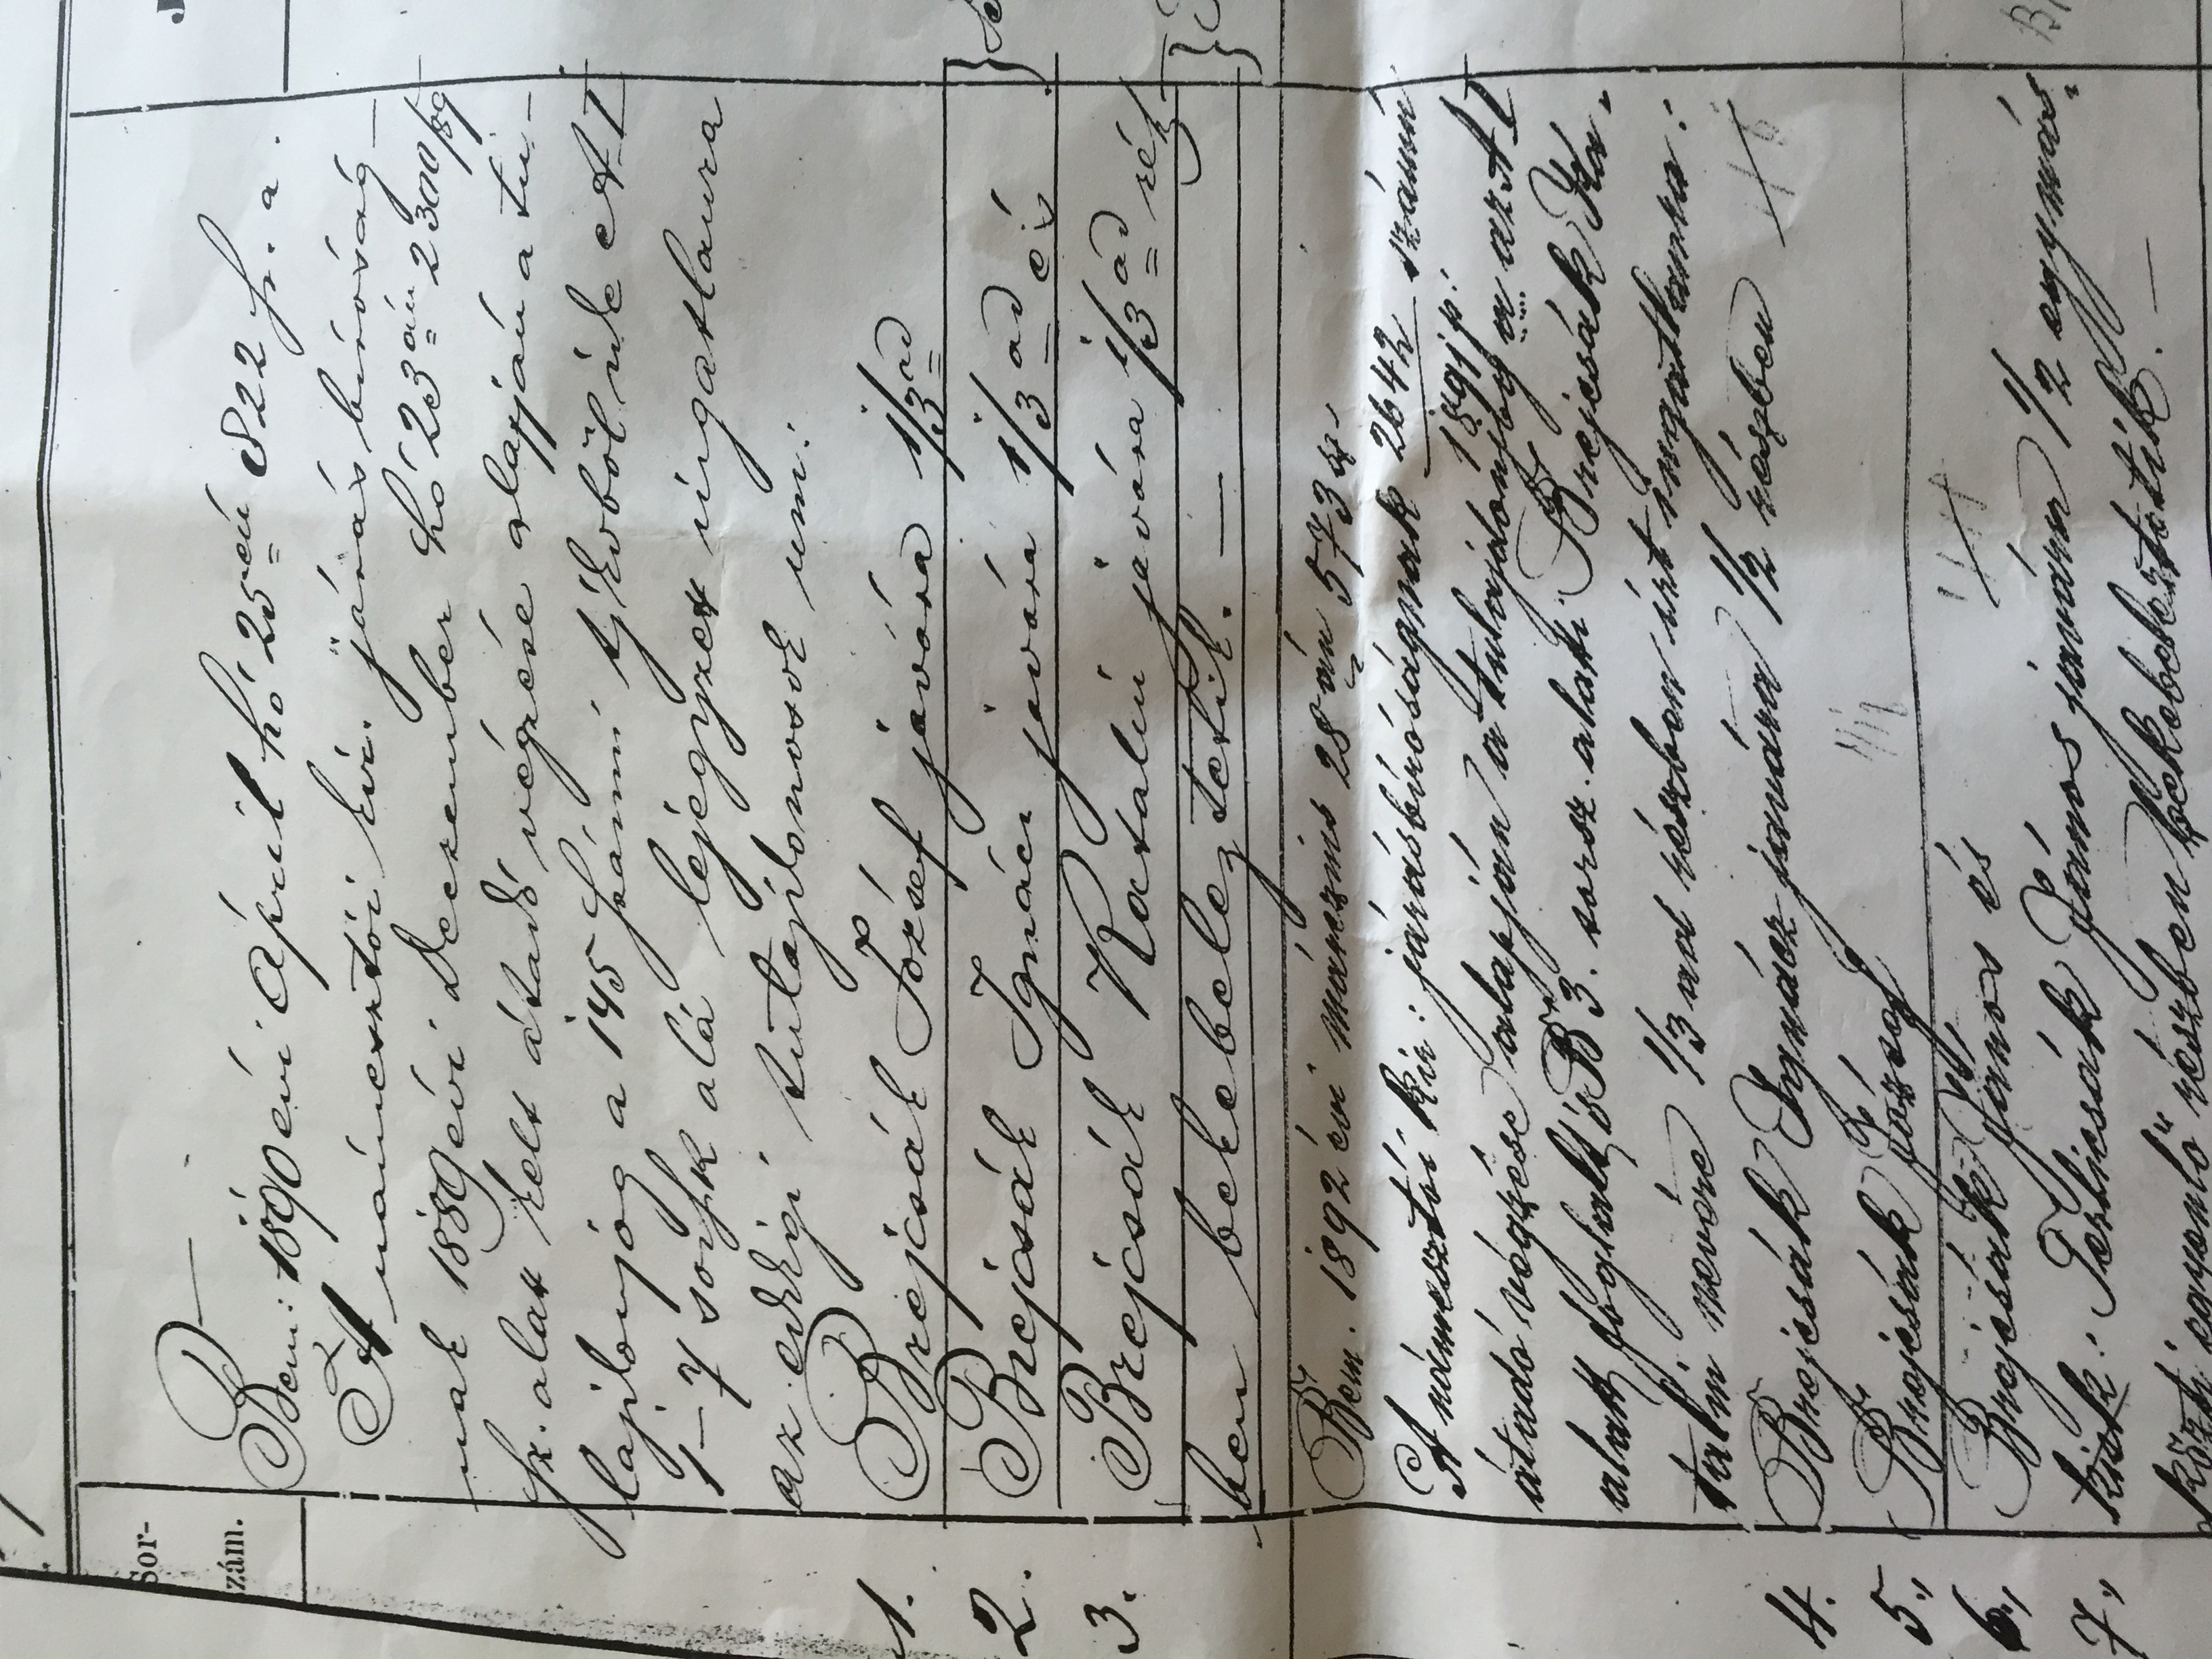 Sor-
szám.
B
Bem: 1890 évi Ápril hó 25én 822 sz. a.
A námesztói kir. járásbíróság-
nak 1889 évi Deczember hó 23án 2300/89
sz. alatt kelt átadó végzése alapján a tu-
lajdonjog a 145 számú tjkvböl ide A I
1-7 sorsz alá lejegyzett ingatlanra
az eddigi tulajdonosok um:
1. Brejcsák József javára 1/3ad
2. Brejcsák Ignácz javára 1/3ad és
3. Brejcsák Katalin javára 1/3ad rész-
ben bekebeleztetik. —
Bem. 1892 évi márczius 28án 573 sz
A námesztói kir: járásbíróságnak 2642 számú
1891 p.
átadó végzése alapján a tulajdonjog az A I
alatt foglalt s B 3. sorsz. alatt Brejcsák Ka-
talin nevére 1/3ad részben irt ingatlanra:
4. Brejcsák Ignácz javára 1/2 részben
5. Brejcsák József
6. Brejcsák János és
7. kisk: János javára 1/2 egymás
közt egyenlö részben bekebeleztetik. —